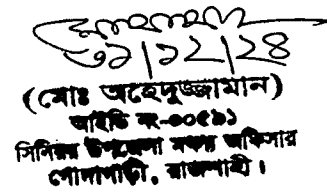 ৩১/১২/২৪
(মোঃ অহেদুজ্জামান)
আইডি নং-০০৫৯১
সিনিয়র উপজেলা মৎস্য অফিসার
গোদাগাড়ী, রাজশাহী।